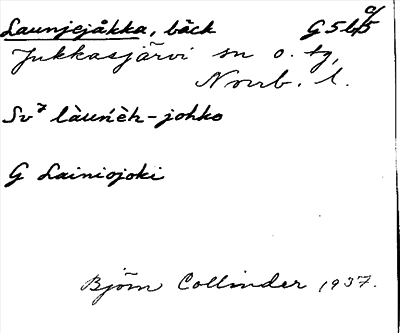 Launjejåkka, bäck
Jukkasjärvi sn o. tg,
Norrb. l.
Sv⁷ làuńèh-johko
G Lainiojoki
Björn Collinder 1937.